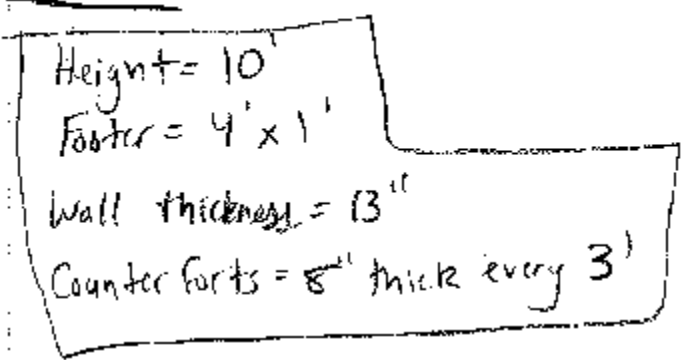 Height = 10'
Footer = 4' x 1'
Wall thickness = 13"
Counter forts = 8" thick every 3'